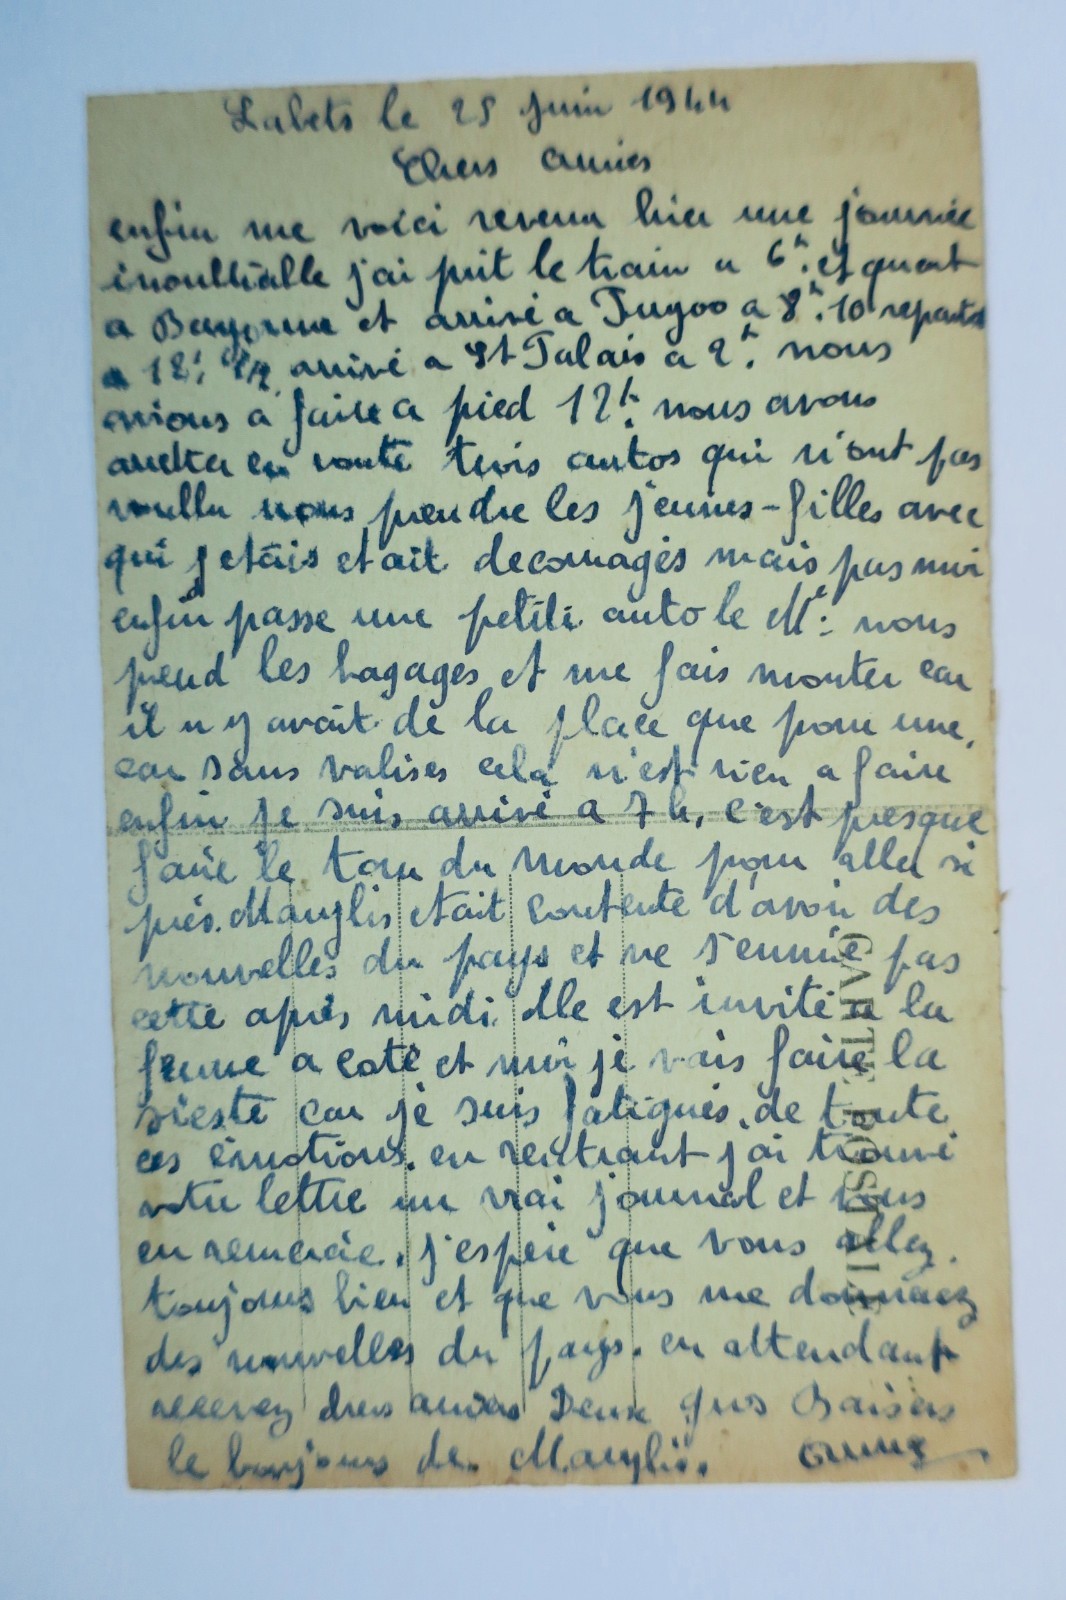 Labets le 25 juin 1944
Chers amies
enfin me voici revenu hier une journée
inoubliable j'ai prit le train a 6h. et quart
a Bayonne et arrivé a Puyoo a 8h.10 repartit
a 12h. 1/2 arrivé a St Palais a 2h. nous
avions a faire a pied 12k. nous avons
arreter en route trois autos qui n'ont pas
voullu nous prendre les jeunes-filles avec
qui j etais etait decouragés mais pas moi
enfin passe une petite auto le Mr: nous
prend les bagages et me fais monter car
il n y avait de la place que pour une,
car sans valises cela n'est rien a faire
enfin je suis arrivé a 7h, c'est presque
faire le tour du monde pour aller si
prés. Maylis etait contente d'avoir des
nouvelles du pays et ne s'ennuie pas
cette aprés midi. elle est invité a la
ferme a coté et moi je vais faire la
sieste car je suis fatigués. de toute
ces émotions. en rentrant j'ai trouvé
votre lettre un vrai journal et vous
en remercie. j'espere que vous allez
toujours bien et que vous me donnerez
des nouvelles du pays. en attendant
recevez chers amies Deux gros Baisers
le bonjours de Maylis.
CARTE POSTALE